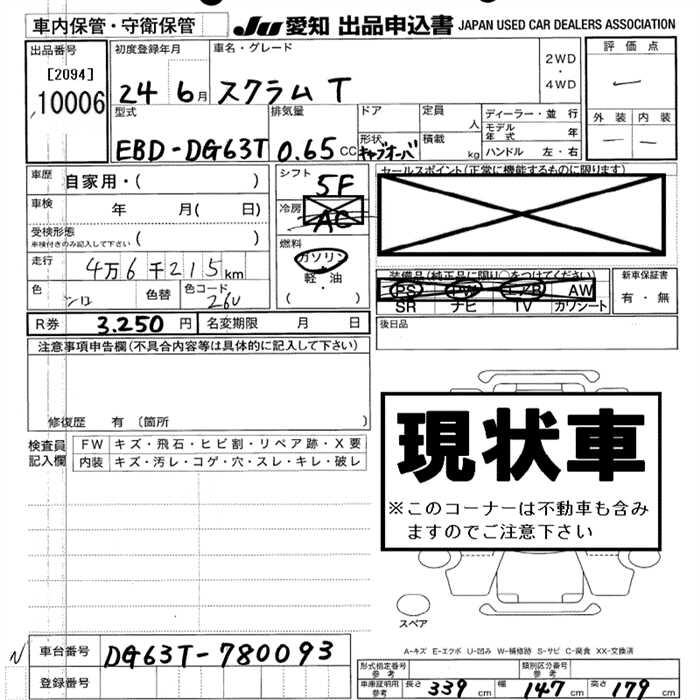 車内保管・守衛保管
JU 愛知 出品申込書 JAPAN USED CAR DEALERS ASSOCIATION
出品番号
[2094]
10006
初度登録年月
24 6月
車名・グレード
スクラム T
2WD
・
4WD
評価点
—
外装 内装
— —
型式
EBD-DG63T
排気量
0.65 CC
ドア
形状
キャブオーバ
定員
人
積載
kg
ディーラー・並行
モデル年式 年
ハンドル 左・右
車歴 自家用・( )
車検 年 月( 日)
受検形態
車検付きのみ記入して下さい ( )
走行 4万6千215km
色 シロ 色替 色コード 26V
シフト 5F
冷房 AC
燃料
ガソリン
・
軽・油
( )
セールスポイント(正常に機能するものに限ります)
装備品(純正品に限り○をつけてください)
PS PW エアB AW
SR ナビ TV カワシート
新車保証書
有・無
R券 3.250 円 名変期限 月 日
後日品
注意事項申告欄(不具合内容等は具体的に記入して下さい)
修復歴 有〔箇所 〕
検査員記入欄
FW キズ・飛石・ヒビ割・リペア跡・X要
内装 キズ・汚レ・コゲ・穴・スレ・キレ・破レ
現状車
※このコーナーは不動車も含み
ますのでご注意下さい
スペア
A-キズ E-エクボ U-凹み W-補修跡 S-サビ C-腐食 XX-交換済
N
車台番号 DG63T-780093
登録番号
形式指定番号 参考
類別区分番号 参考
車庫証明用 参考 長さ 339 cm 幅 147 cm 高さ 179 cm